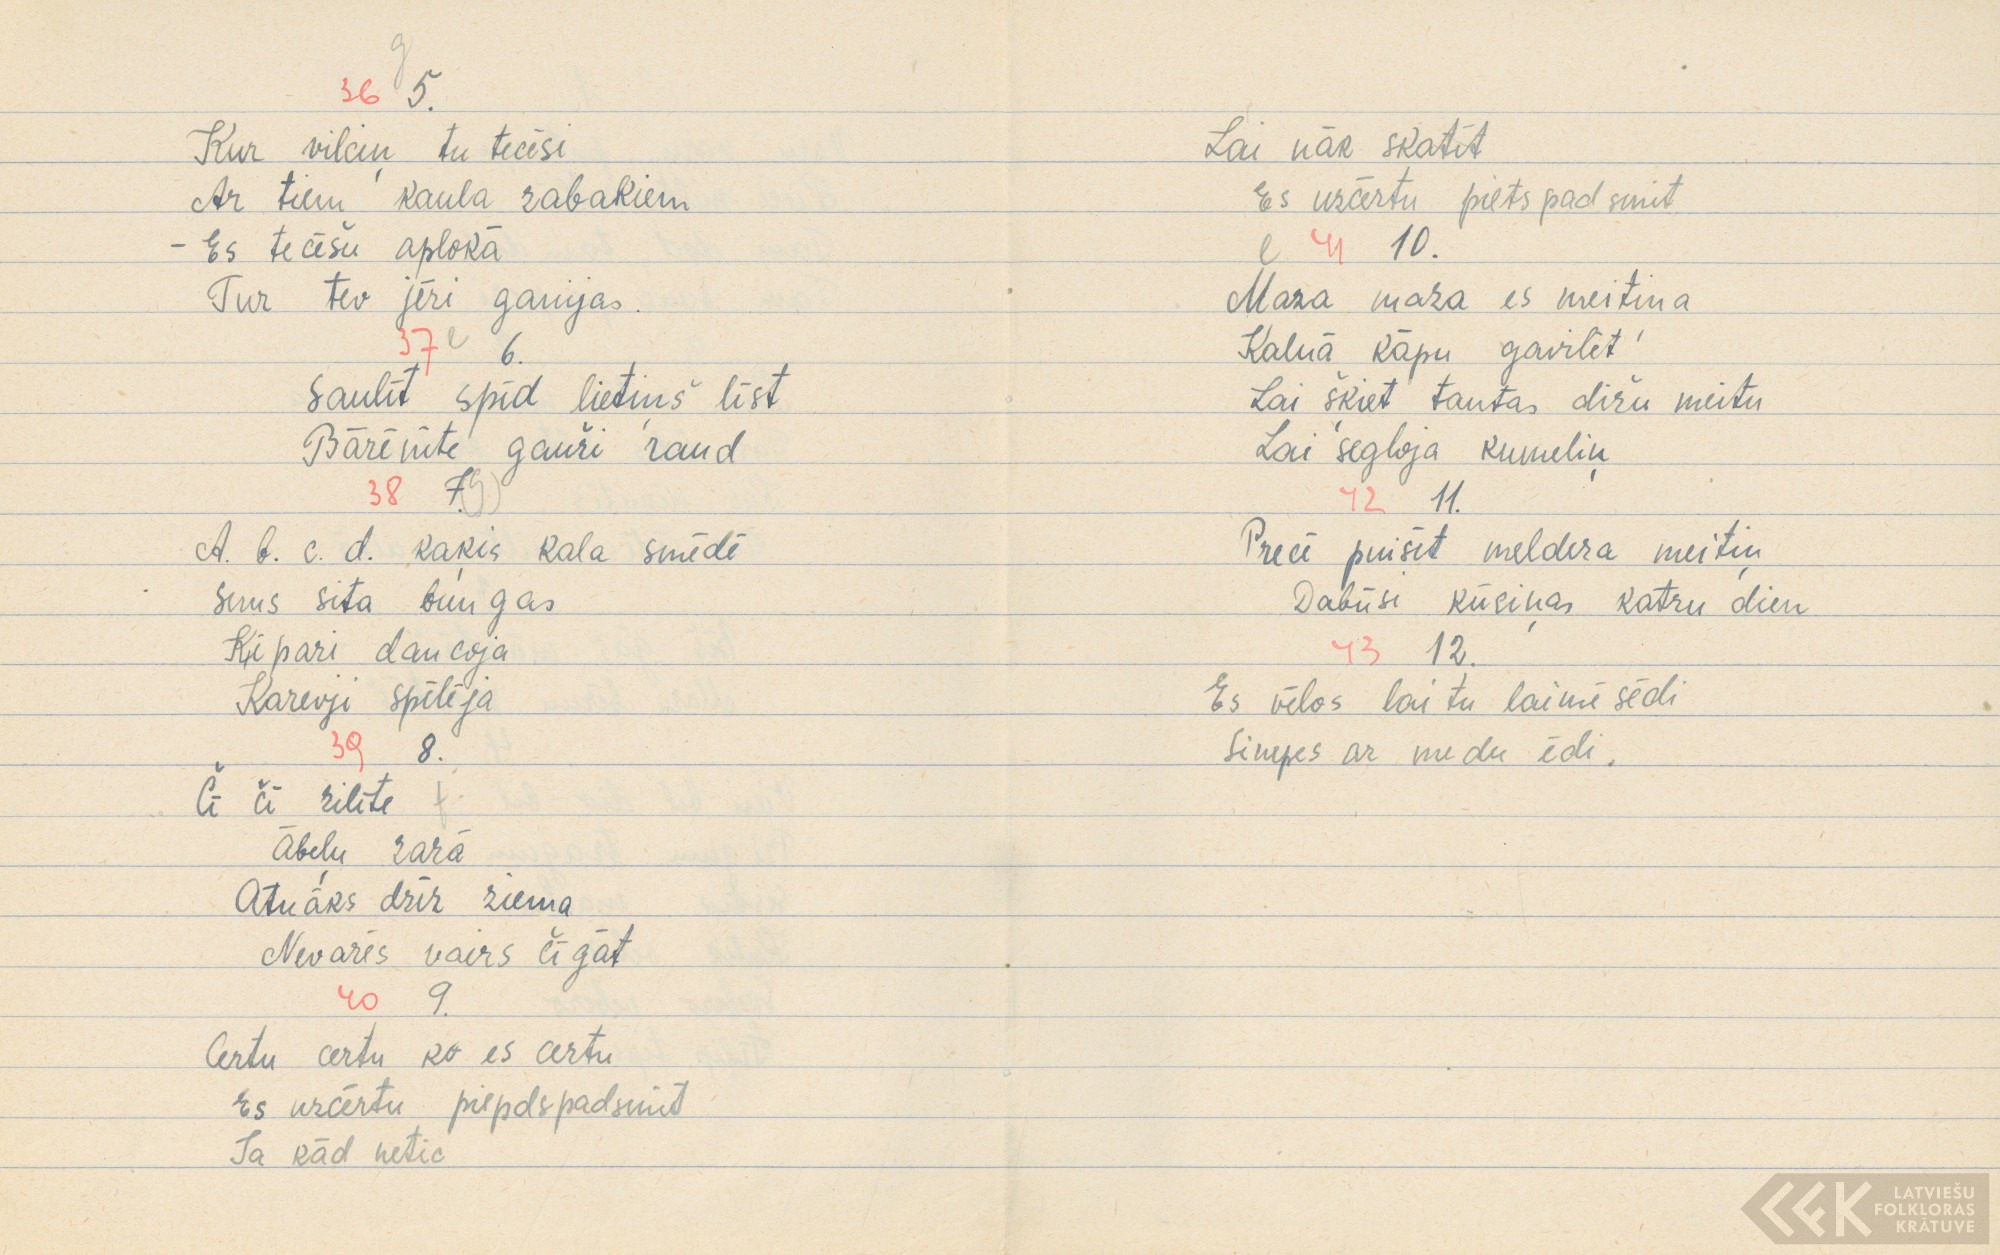 g
36 5.
Kur vilciņ tu tecēsi
Ar tiem kaula zabakiem
- Es tecēšu aplokā
Tur tev jēri ganijas.
37 e 6.
Saulīt spīd lietiņš līst
Bārēnīte gauži raud
38 7. (g)
A. b. c. d. kaķis kala smēdē
Suns sita bungas
Ķipari dancoja
Karevji spēlēja
39 8.
Čī čī zilīte f
Ābeļu zarā
Atnāks drīz ziema
Nevarēs vairs čīgāt
40 9.
Certu certu ko es certu
Es uzcērtu piepdspadsmit
Ja kād netic
Lai nāk skatīt
Es uzcērtu pietspadsmit
e 41 10.
Maza maza es meitina
Kalnā kāpu gavilēt
Lai šķiet tautas dižu meitu
Lai segloja kumeliņ
42 11.
Precē puisīt meldera meitiņ
Dabūsi kūciņas katru dien
43 12.
Es vēlos lai tu laimē sēdi
Sinepes ar medu ēdi.
LATVIEŠU
FOLKLORAS
KRĀTUVE